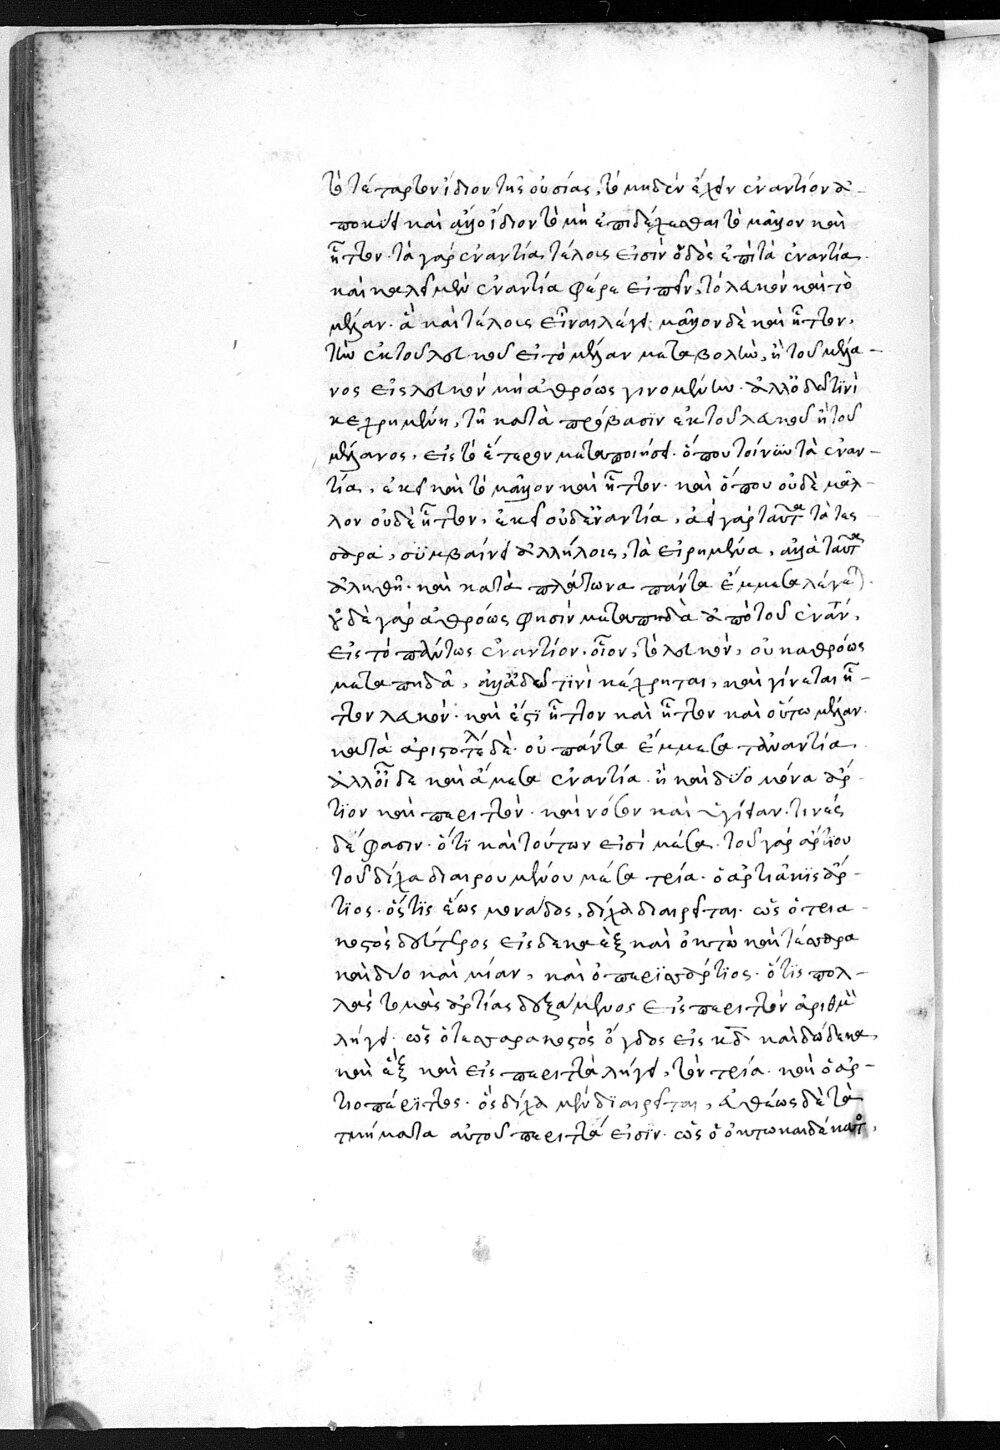 τὸ τέταρτον ἴδιον τῆς οὐσίας, τὸ μηδὲν ἔχειν ἐναντίον ἀ-
ποκεῖ καὶ ἄλλο ἴδιον τὸ μὴ ἐπιδέχεσθαι τὸ μᾶλλον καὶ
ἧττον. τὰ γὰρ ἐναντία τέλος εἰσὶν ὁδὸς ἐπὶ τὰ ἐναντία.
καὶ καλεῖ μὲν ἐναντία φέρε εἰπεῖν, τὸ λευκὸν καὶ τὸ
μέλαν. ἃ καὶ τέλος εἶναι λέγει. μᾶλλον δὲ καὶ ἧττον,
τὴν ἐκ τοῦ λευκοῦ εἰς τὸ μέλαν μεταβολὴν, ἢ τοῦ μέλα-
νος εἰς λευκὸν μὴ ἀθρόως γινομένην. ἀλλ' ὁδῷ τινὶ
κεχρημένη, τῇ κατὰ πρόβασιν ἐκ τοῦ λευκοῦ ἢ τοῦ
μέλανος, εἰς τὸ ἕτερον μεταποιήσει. ὅπου τοίνυν τὰ ἐναν-
τία, ἐκεῖ καὶ τὸ μᾶλλον καὶ ἧττον. καὶ ὅπου οὐδὲ μᾶλ-
λον οὐδὲ ἧττον, ἐκεῖ οὐδ' ἐναντία, ἀεὶ γὰρ ταῦτα τὰ τέσ
σαρα, συμβαίνει ἀλλήλοις, τὰ εἰρημένα, ἀλλὰ ταῦτα
ἀληθῆ. καὶ κατὰ πλάτωνα πάντα ἔμμεσα λέγεται.
οὐδὲ γὰρ ἀθρόως φησὶν μεταπηδᾶ ἀπὸ τοῦ ἐναντίου,
εἰς τὸ πάντως ἐναντίον. οἷον, τὸ λευκὸν, οὐκ ἀθρόως
μεταπηδᾶ, ἀλλ' ὁδῷ τινὶ κέχρηται, καὶ γίνεται ἧτ-
τον λευκόν. καὶ ἔτι ἧττον καὶ ἧττον καὶ οὕτω μέλαν.
κατὰ ἀριστοτέλη δὲ. οὐ πάντα ἔμμεσα τἀναντία.
ἀλλ' οἶδε καὶ ἄμεσα ἐναντία. ἢ καὶ δύο μόνα ἄρ-
τιον καὶ περιττὸν. καὶ νόσον καὶ ὑγίειαν. τινὲς
δέ φασιν. ὅτι καὶ τούτων εἰσὶ μέσα. τοῦ γὰρ ἀρτίου
τοῦ δίχα διαιρουμένου μέσα τρία. ὁ ἀρτιάκις ἄρ-
τιος. ὅστις ἕως μονάδος, δίχα διαιρεῖται. ὡς ὁ τρια-
κοστὸς δεύτερος εἰς δεκαὲξ καὶ ὀκτὼ καὶ τέσσαρα
καὶ δύο καὶ μίαν, καὶ ὁ περισσάρτιος. ὅστις πολ-
λὰς τομὰς ἀρτίας δεξάμενος εἰς περιττὸν ἀριθμὸν
λήγει. ὡς ὁ τεσσαρακοστὸς ὄγδοος εἰς κδ καὶ δώδεκα,
καὶ ἓξ καὶ εἰς περιττὰ λήγει, τὸν τρία. καὶ ὁ ἀρ-
τιοπέριττος. ὃς δίχα μὲν διαιρεῖται, εὐθέως δὲ τὰ
τμήματα αὐτοῦ περιττά εἰσιν. ὡς ὁ ὀκτωκαιδέκατος,